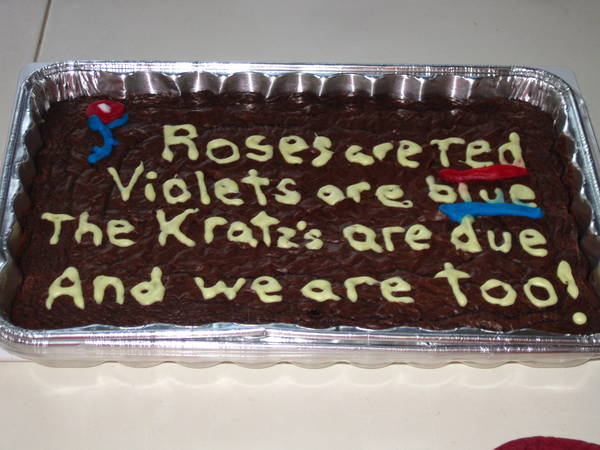 Roses are red
Violets are blue
The Kratz's are due
And we are too!